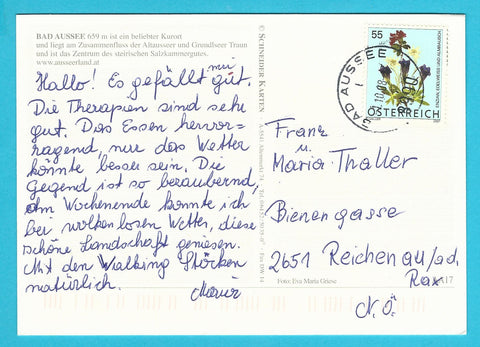 BAD AUSSEE 659 m ist ein beliebter Kurort
und liegt am Zusammenfluss der Altausseer und Grundlseer Traun
und ist das Zentrum des steirischen Salzkammergutes.
www.ausseerland.at
Hallo! Es gefällt mir gut.
Die Therapien sind sehr
gut. Das Essen hervor-
ragend, nur das Wetter
könnte besser sein. Die
Gegend ist so bezaubernd,
am Wochenende konnte ich
bei wolkenlosen Wetter, diese
schöne Landschaft geniesen.
Mit den Walking Stöcken
natürlich.
© SCHNEIDER KARTEN
55
ÖSTERREICH
BAD AUSSEE
Franz
u.
Maria Thaller
Bienengasse
2651 Reichenau/a.d.
Rax
N.Ö.
Foto: Eva Maria Griese